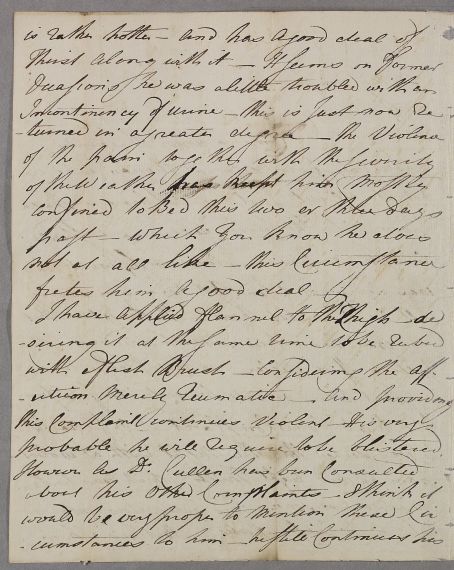 is rather hotter – and has a good deal of
Thirst along with it – It seems on former
Occasions he was a little troubled with an
Incontinency of urine – this is Just now Re
-turned in a greater degree – the Violence
of the pain together with the Severity
of the Weather has kept him Mostly
confined to Bed this two or three Days
past – which you know he does
not at all like – this Circumstance
fretes him a good deal –
I have applied flannel to the Thigh – de
-siring it at the same time to be rubed
with a flesh Brush – considering the aff-
-ection Merely Reumatic – and providing
this Complaint continues Violent – It is very
probable he will require to be blistered
However as Dr. Cullen has been Consulted
about his other Complaints – I think it
would be very proper to mention these Cir
-cumstances to him – he still Continues his